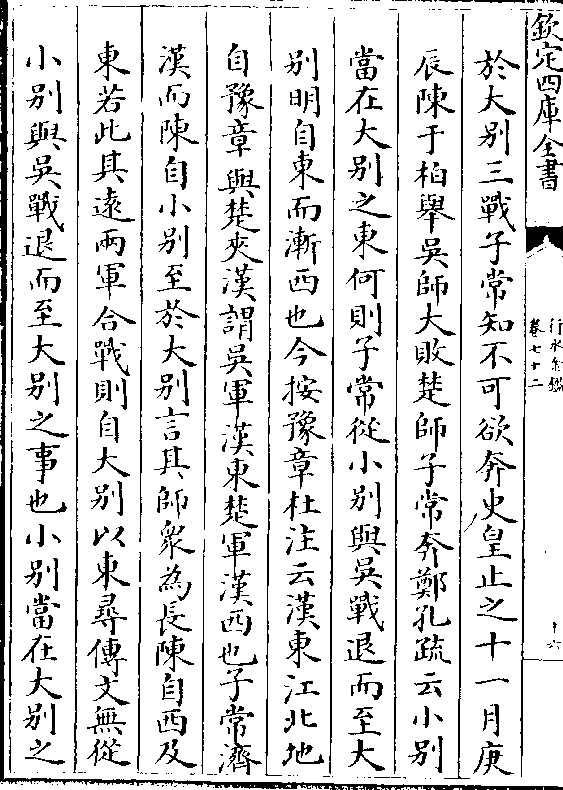 欽定四庫全書
行水金鑑
卷七十二
十六
於大别三戰子常知不可欲奔史皇止之十一月庚
辰陳于柏舉吳師大敗楚師子常奔鄭孔疏云小别
當在大别之東何則子常從小别與吳戰退而至大
别明自東而漸西也今按豫章杜注云漢東江北地
自豫章與楚夾漢謂吳軍漢東楚軍漢西也子常濟
漢而陳自小别至於大别言其師衆為長陳自西及
東若此其遠兩軍合戰則自大别以東尋傳文無從
小别與吳戰退而至大别之事也小别當在大别之